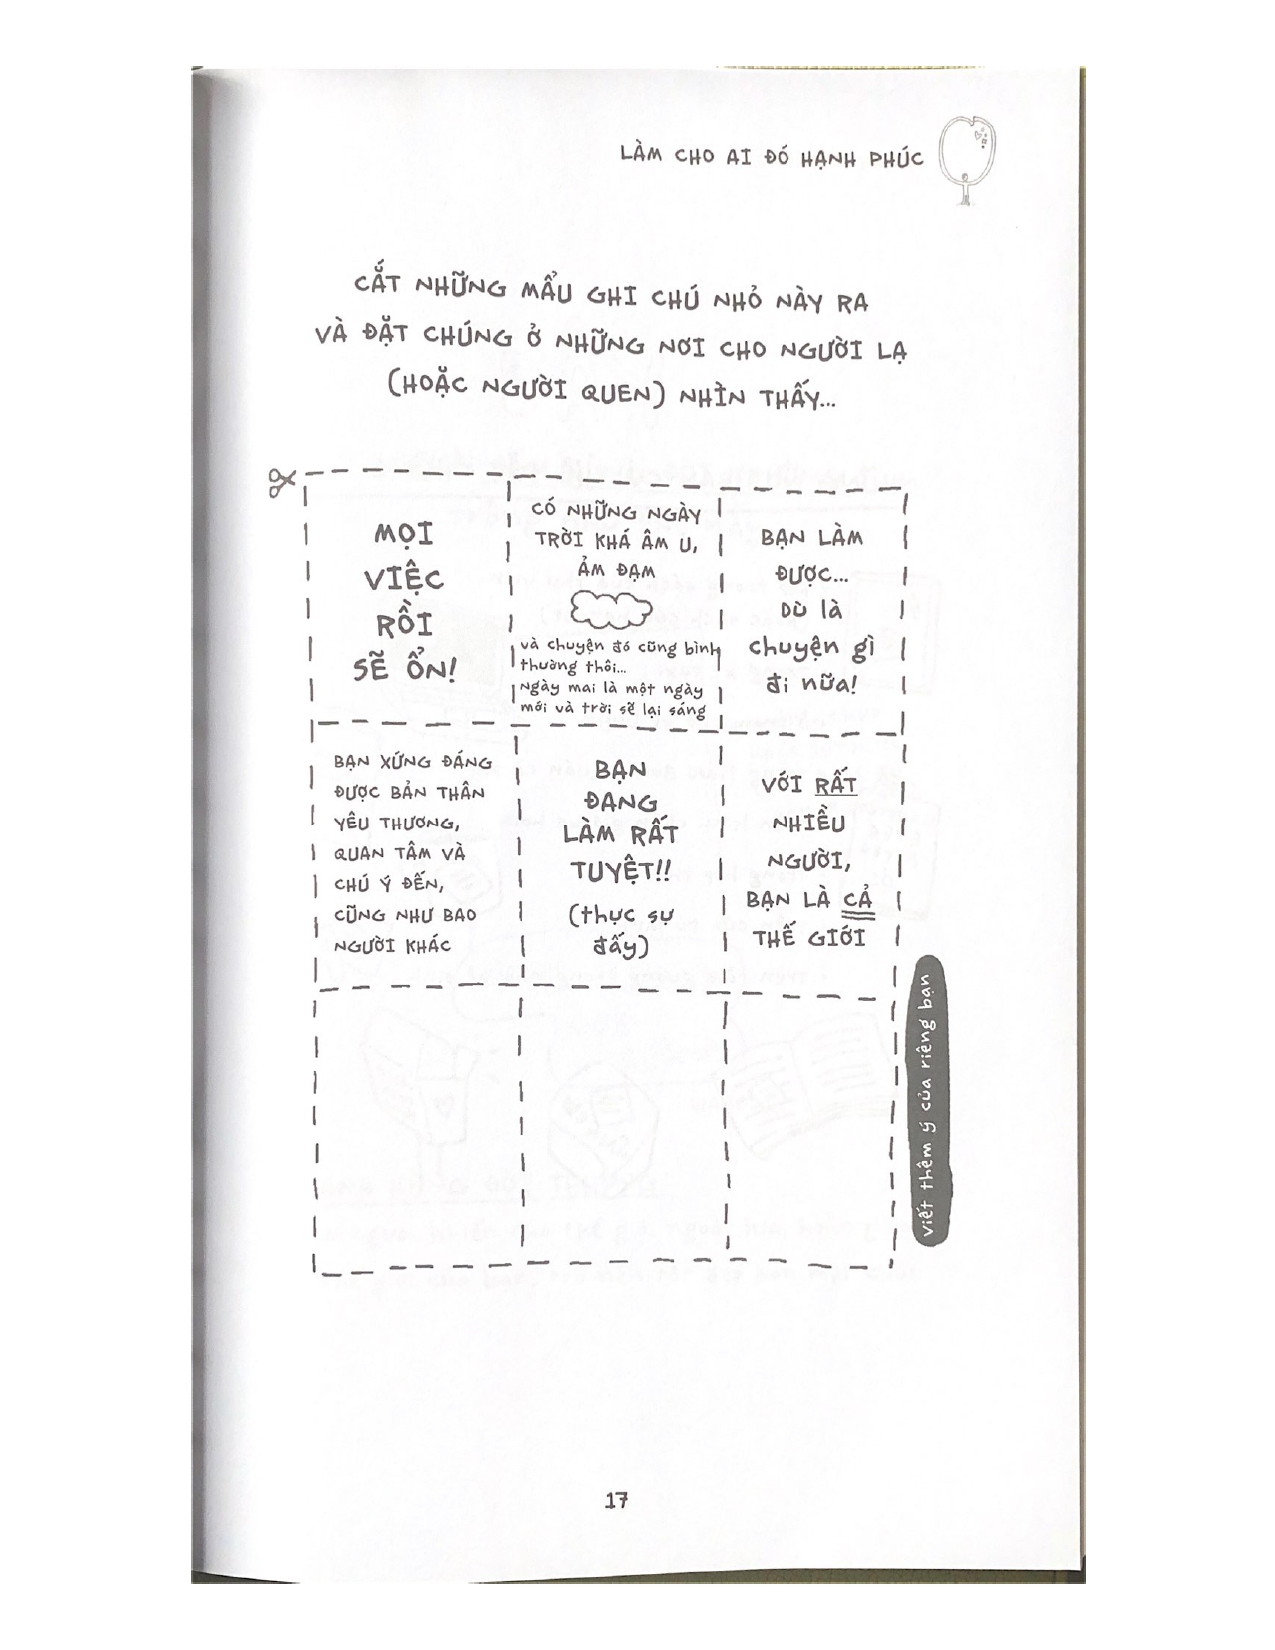 LÀM CHO AI ĐÓ HẠNH PHÚC
CẮT NHỮNG MẨU GHI CHÚ NHỎ NÀY RA
VÀ ĐẶT CHÚNG Ở NHỮNG NƠI CHO NGƯỜI LẠ
(HOẶC NGƯỜI QUEN) NHÌN THẤY...
MỌI
VIỆC
RỒI
SẼ ỔN!
CÓ NHỮNG NGÀY
TRỜI KHÁ ÂM U,
ẢM ĐẠM
và chuyện đó cũng bình
thường thôi...
Ngày mai là một ngày
mới và trời sẽ lại sáng
BẠN LÀM
ĐƯỢC...
DÙ là
chuyện gì
đi nữa!
BẠN XỨNG ĐÁNG
ĐƯỢC BẢN THÂN
YÊU THƯƠNG,
QUAN TÂM VÀ
CHÚ Ý ĐẾN,
CŨNG NHƯ BAO
NGƯỜI KHÁC
BẠN
ĐANG
LÀM RẤT
TUYỆT!!
(thực sự
đấy)
VỚI RẤT
NHIỀU
NGƯỜI,
BẠN LÀ CẢ
THẾ GIỚI
viết thêm ý của riêng bạn
17